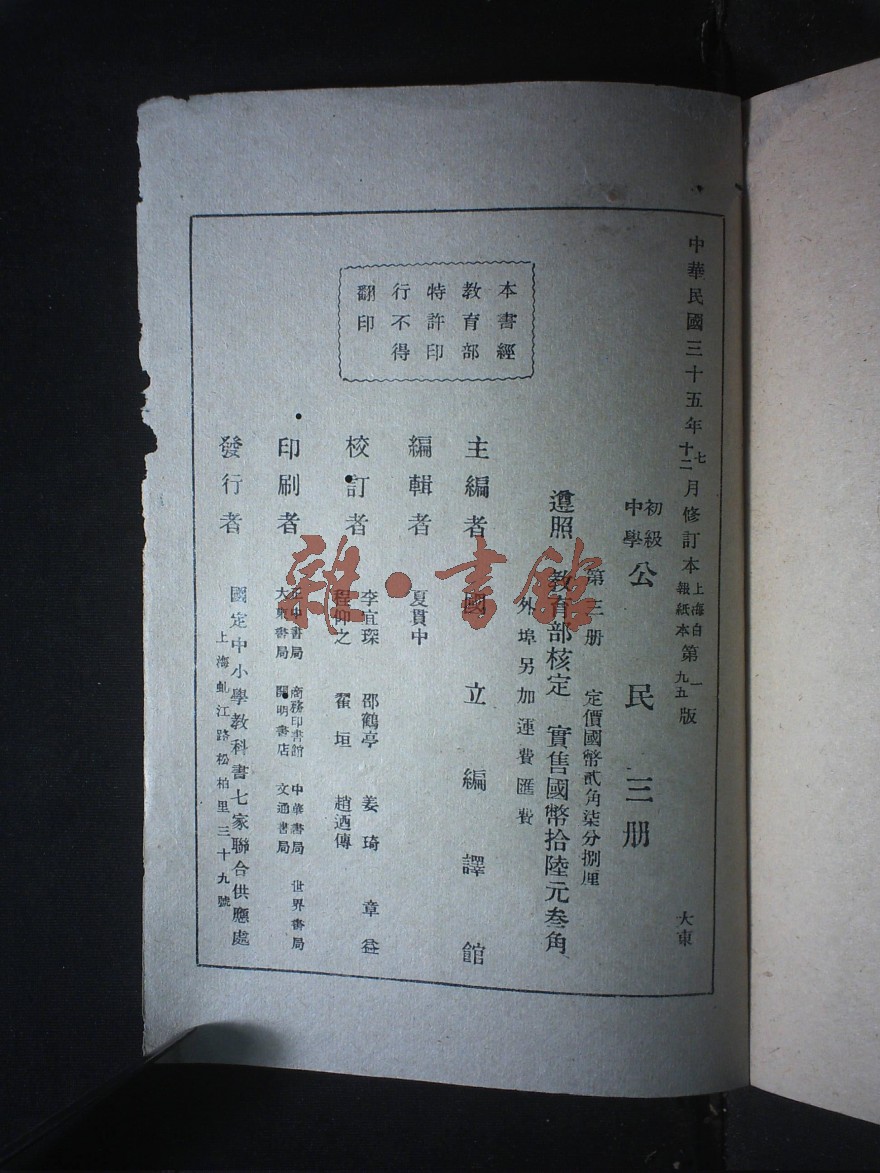 中華民國三十五年七月修訂本上海白報紙本第一版
十二 九五
大東
初級中學公民三册
第三册 定價國幣貳角柒分捌厘
遵照教育部核定 實售國幣拾陸元叁角
外埠另加運費匯費
主編者 國立編譯館
編輯者 夏貫中
校訂者 李宜琛 邵鶴亭 姜琦 章益
程仰之 翟垣 趙迺傳
印刷者 正中書局 商務印書館 中華書局 世界書局
大東書局 開明書店 文通書局
發行者 國定中小學教科書七家聯合供應處
上海虬江路松柏里三十九號
本書經
教育部
特許印
行不得
翻印
雜·書館